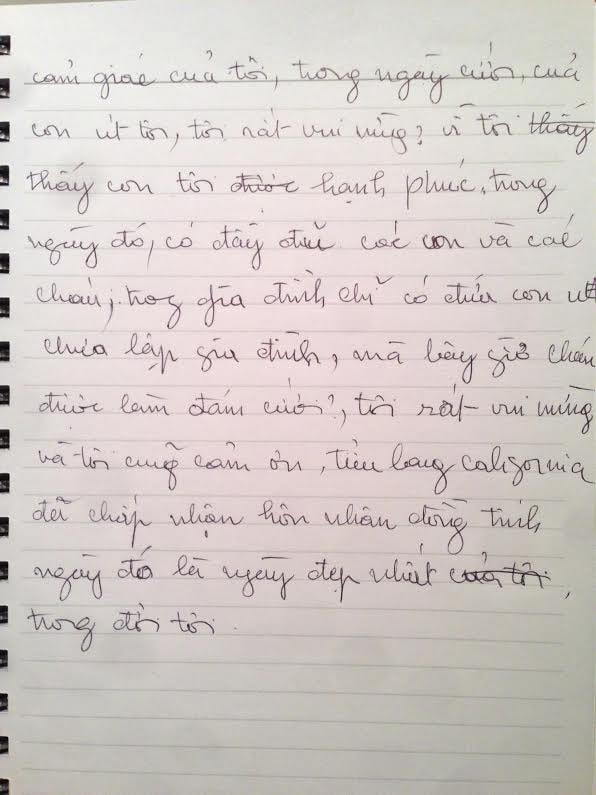 cảm giác của tôi, trong ngày cưới, của
con út tôi, tôi rất vui mừng, vì tôi thấy
thấy con tôi được hạnh phúc, trong
ngày đó, có đầy đủ các con và các
cháu, trong gia đình chỉ có đứa con út
chưa lập gia đình, mà bây giờ cháu
được làm đám cưới, tôi rất vui mừng
và tôi cũng cảm ơn, tiểu bang california
đã chấp nhận hôn nhân đồng tính
ngày đó là ngày đẹp nhất của tôi,
trong đời tôi.